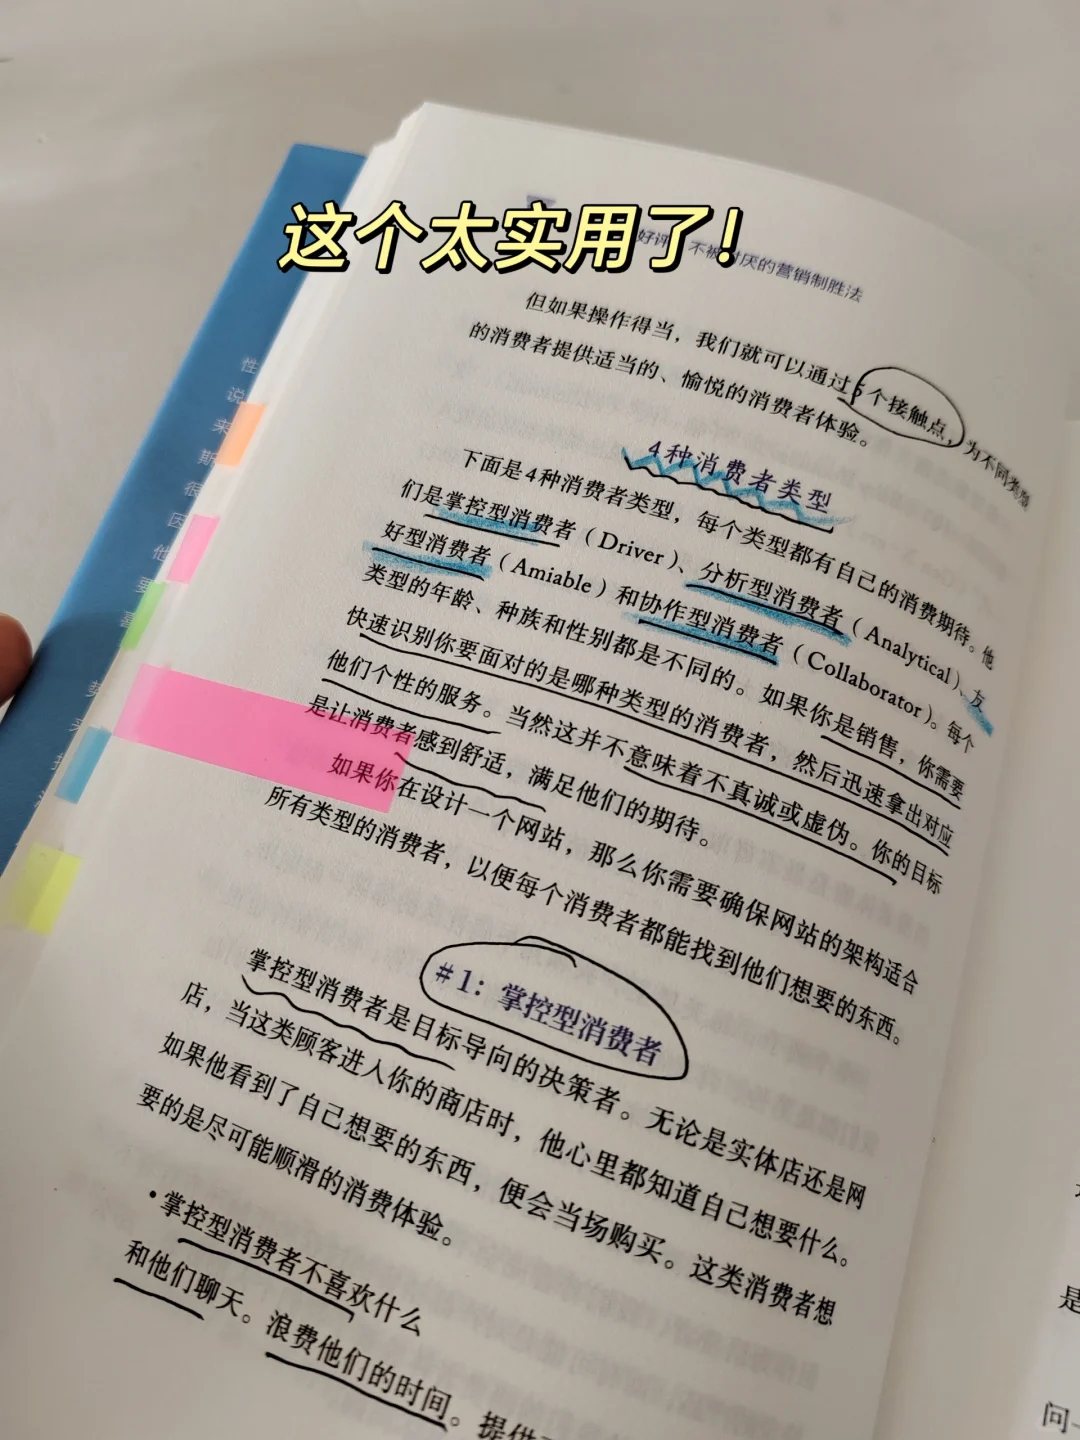 这个太实用了！
好评 不被讨厌的营销制胜法
但如果操作得当，我们就可以通过5个接触点，为不同类型
的消费者提供适当的、愉悦的消费者体验。
4种消费者类型
下面是4种消费者类型，每个类型都有自己的消费期待。他
们是掌控型消费者（Driver）、分析型消费者（Analytical）、友
好型消费者（Amiable）和协作型消费者（Collaborator）。每个
类型的年龄、种族和性别都是不同的。如果你是销售，你需要
快速识别你要面对的是哪种类型的消费者，然后迅速拿出对应
他们个性的服务。当然这并不意味着不真诚或虚伪。你的目标
是让消费者感到舒适，满足他们的期待。
如果你在设计一个网站，那么你需要确保网站的架构适合
所有类型的消费者，以便每个消费者都能找到他们想要的东西。
#1：掌控型消费者
掌控型消费者是目标导向的决策者。无论是实体店还是网
店，当这类顾客进入你的商店时，他心里都知道自己想要什么。
如果他看到了自己想要的东西，便会当场购买。这类消费者想
要的是尽可能顺滑的消费体验。
•掌控型消费者不喜欢什么
和他们聊天。浪费他们的时间。提供
性
说
来
斯
很
因
他
要
喜
势
来
是
问